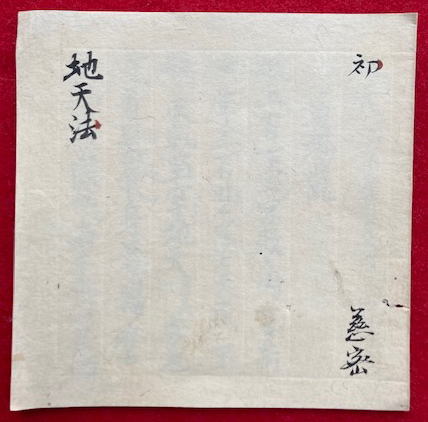 初
地天法
慈密